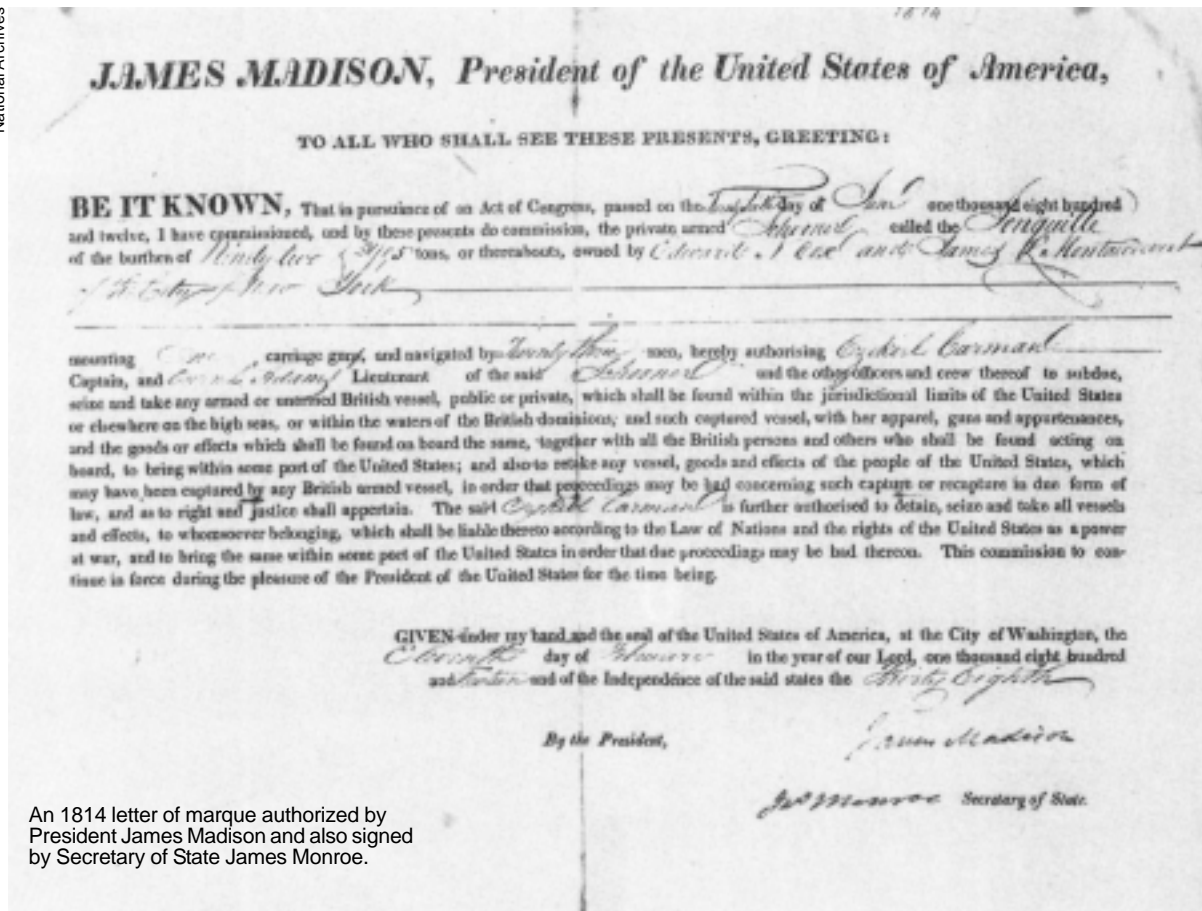 National Archives
1814
JAMES MADISON, President of the United States of America,
TO ALL WHO SHALL SEE THESE PRESENTS, GREETING:
BE IT KNOWN, That in pursuance of an Act of Congress, passed on the day of one thousand eight hundred
and twelve, I have commissioned, and by these presents do commission, the private armed Schooner called the
of the burthen of tons, or thereabouts, owned by Edward and James
of the City of New York
mounting One carriage guns, and navigated by Twenty three men, hereby authorising Ezekiel Carman
Captain, and Lieutenant of the said Schooner and the other officers and crew thereof to subdue,
seize and take any armed or unarmed British vessel, public or private, which shall be found within the jurisdictional limits of the United States
or elsewhere on the high seas, or within the waters of the British dominions, and such captured vessel, with her apparel, guns and appurtenances,
and the goods or effects which shall be found on board the same, together with all the British persons and others who shall be found acting on
board, to bring within some port of the United States; and also to retake any vessel, goods and effects of the people of the United States, which
may have been captured by any British armed vessel, in order that proceedings may be had concerning such capture or recapture in due form of
law, and as to right and justice shall appertain. The said Ezekiel Carman is further authorised to detain, seize and take all vessels
and effects, to whomsoever belonging, which shall be liable thereto according to the Law of Nations and the rights of the United States as a power
at war, and to bring the same within some port of the United States in order that due proceedings may be had thereon. This commission to con-
tinue in force during the pleasure of the President of the United States for the time being.
GIVEN under my hand and the seal of the United States of America, at the City of Washington, the
Eleventh day of in the year of our Lord, one thousand eight hundred
and fourteen and of the Independence of the said states the Thirty Eighth
By the President, James Madison
Jas Monroe Secretary of State.
An 1814 letter of marque authorized by
President James Madison and also signed
by Secretary of State James Monroe.